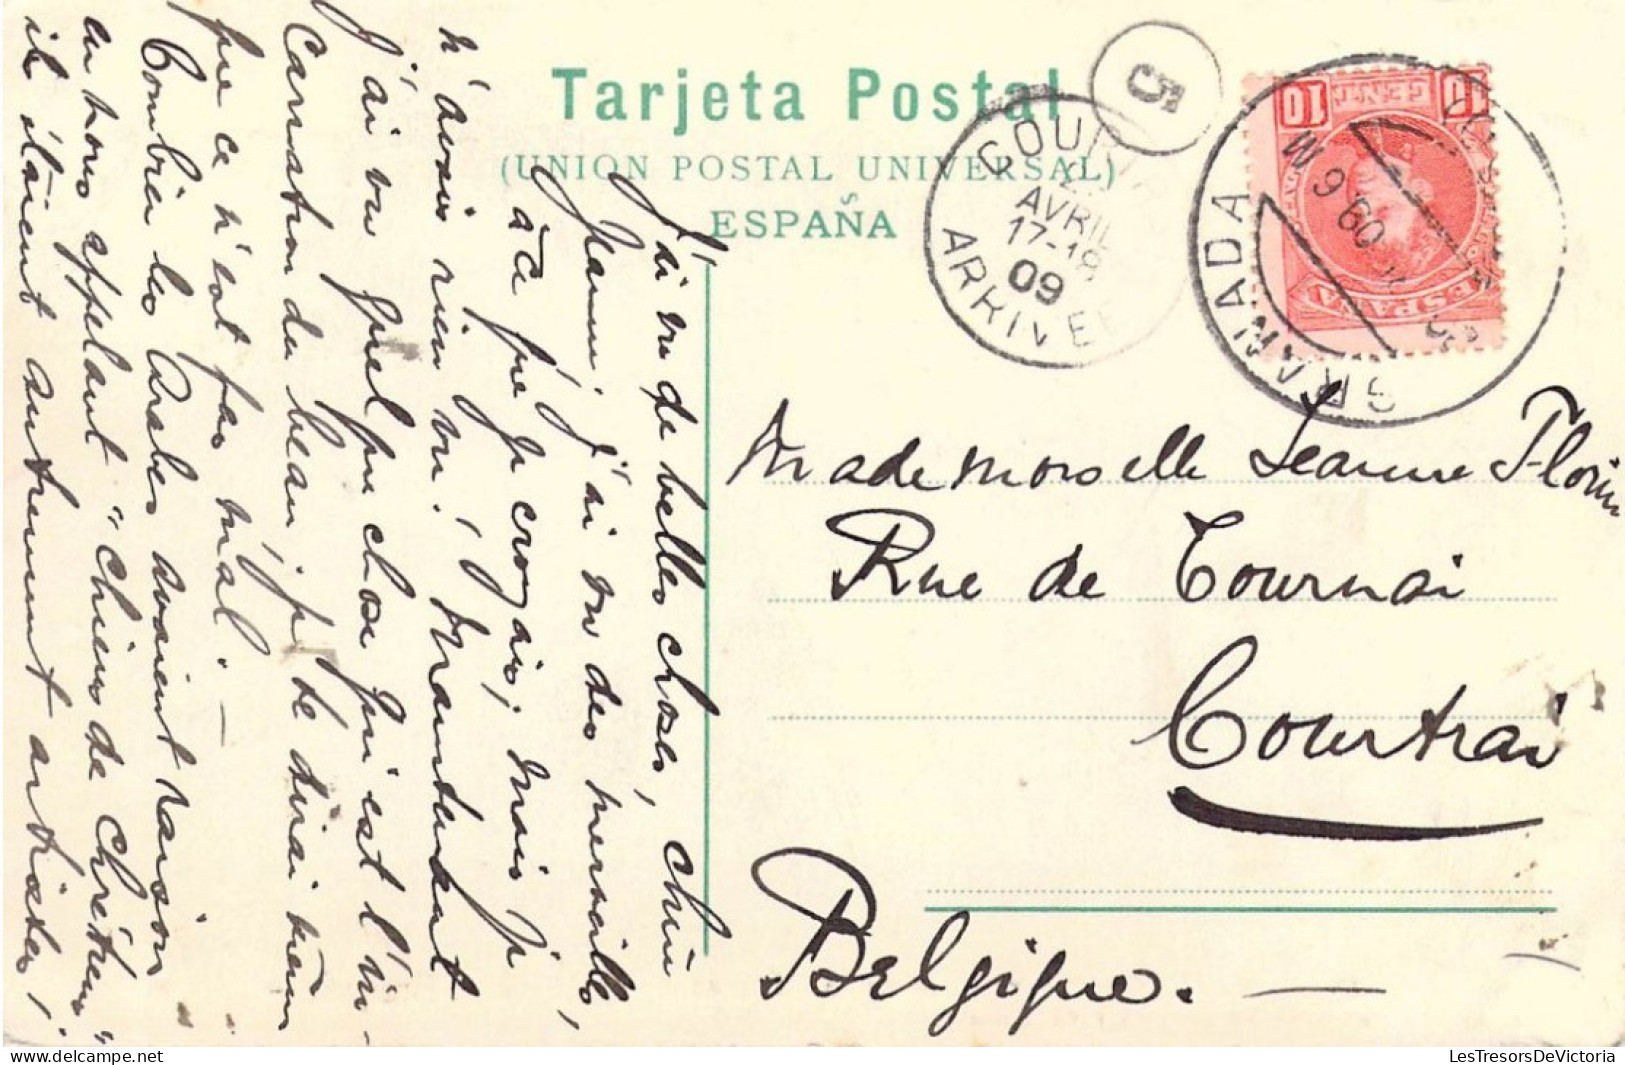 Tarjeta Postal
(UNION POSTAL UNIVERSAL)
ESPAÑA
5
COUR
AVRIL
17-18
09
ARRIVEE
GRANADA
10 10
ESPAÑA
Mademoiselle Jeanne Florin
Rue de Tournai
Courtrai
Belgique. —
J'ai vu de belles choses, chère
Jeanne, j'ai vu des merveilles,
à ce que je croyais; mais je
n'avais rien vu! Maintenant
j'ai vu quelque chose qui est l'in-
carnation du beau; je te dirai même
que ce n'est pas mal. —
Combien les Arabes avaient raison
en nous appelant "Chiens de Chrétiens";
ils étaient autrement artistes!
LesTresorsDeVictoria